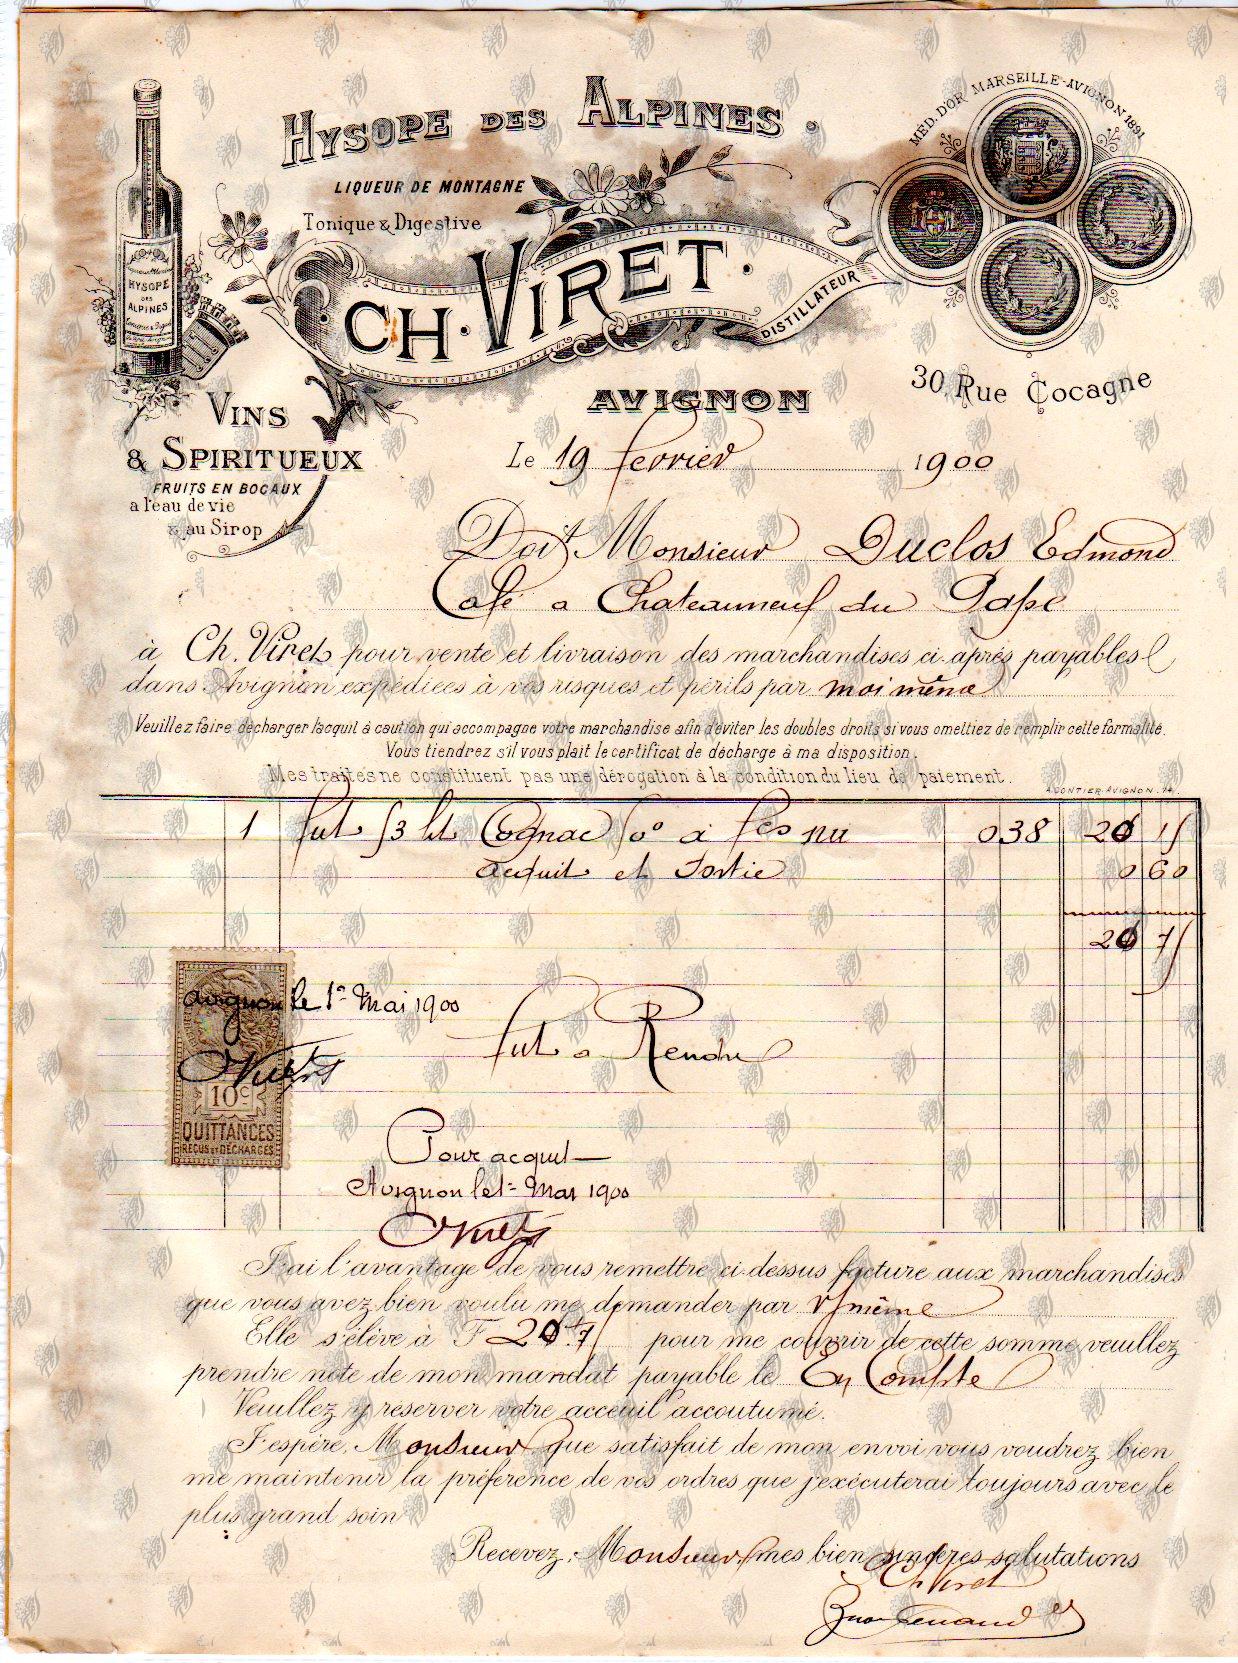 MED. D'OR MARSEILLE-AVIGNON 1891
HYSOPE DES ALPINES.
LIQUEUR DE MONTAGNE
Tonique & Digestive
CH. VIRET.
DISTILLATEUR
HYSOPE
DES
ALPINES
AVIGNON
30, Rue Cocagne
VINS
& SPIRITUEUX
FRUITS EN BOCAUX
a l'eau de vie
& au Sirop
Le 19 fevrier 1900
Doit Monsieur Duclos Edmond
Café a Chateauneuf du Pape
à Ch. Viret pour vente et livraison des marchandises ci-après payables
dans Avignon expédiées à vos risques et périls par moi même
Veuillez faire décharger l'acquit à caution qui accompagne votre marchandise afin d'éviter les doubles droits si vous omettiez de remplir cette formalité.
Vous tiendrez s'il vous plait le certificat de décharge à ma disposition.
Mes traites ne constituent pas une dérogation à la condition du lieu de paiement.
A. GONTIER-AVIGNON.
1 fut 53 lit Cognac 50° à fcs nu 038 20 15
acquit et Sortie 0 60
20 75
Avignon le 1er Mai 1900
Viret
10c
QUITTANCES
REÇUS ET DÉCHARGES
fut a Rendre
Pour acquit
Avignon le 1er Mai 1900
Viret
J'ai l'avantage de vous remettre ci-dessus facture aux marchandises
que vous avez bien voulu me demander par V/même
Elle s'élève à F 20.75 pour me couvrir de cette somme veuillez
prendre note de mon mandat payable le En Compte
Veuillez y réserver votre acceuil accoutumé.
J'espère, Monsieur que satisfait de mon envoi vous voudrez bien
me maintenir la préférence de vos ordres que j'exécuterai toujours avec le
plus grand soin
Recevez, Monsieur, mes bien sincères salutations
Ch Viret